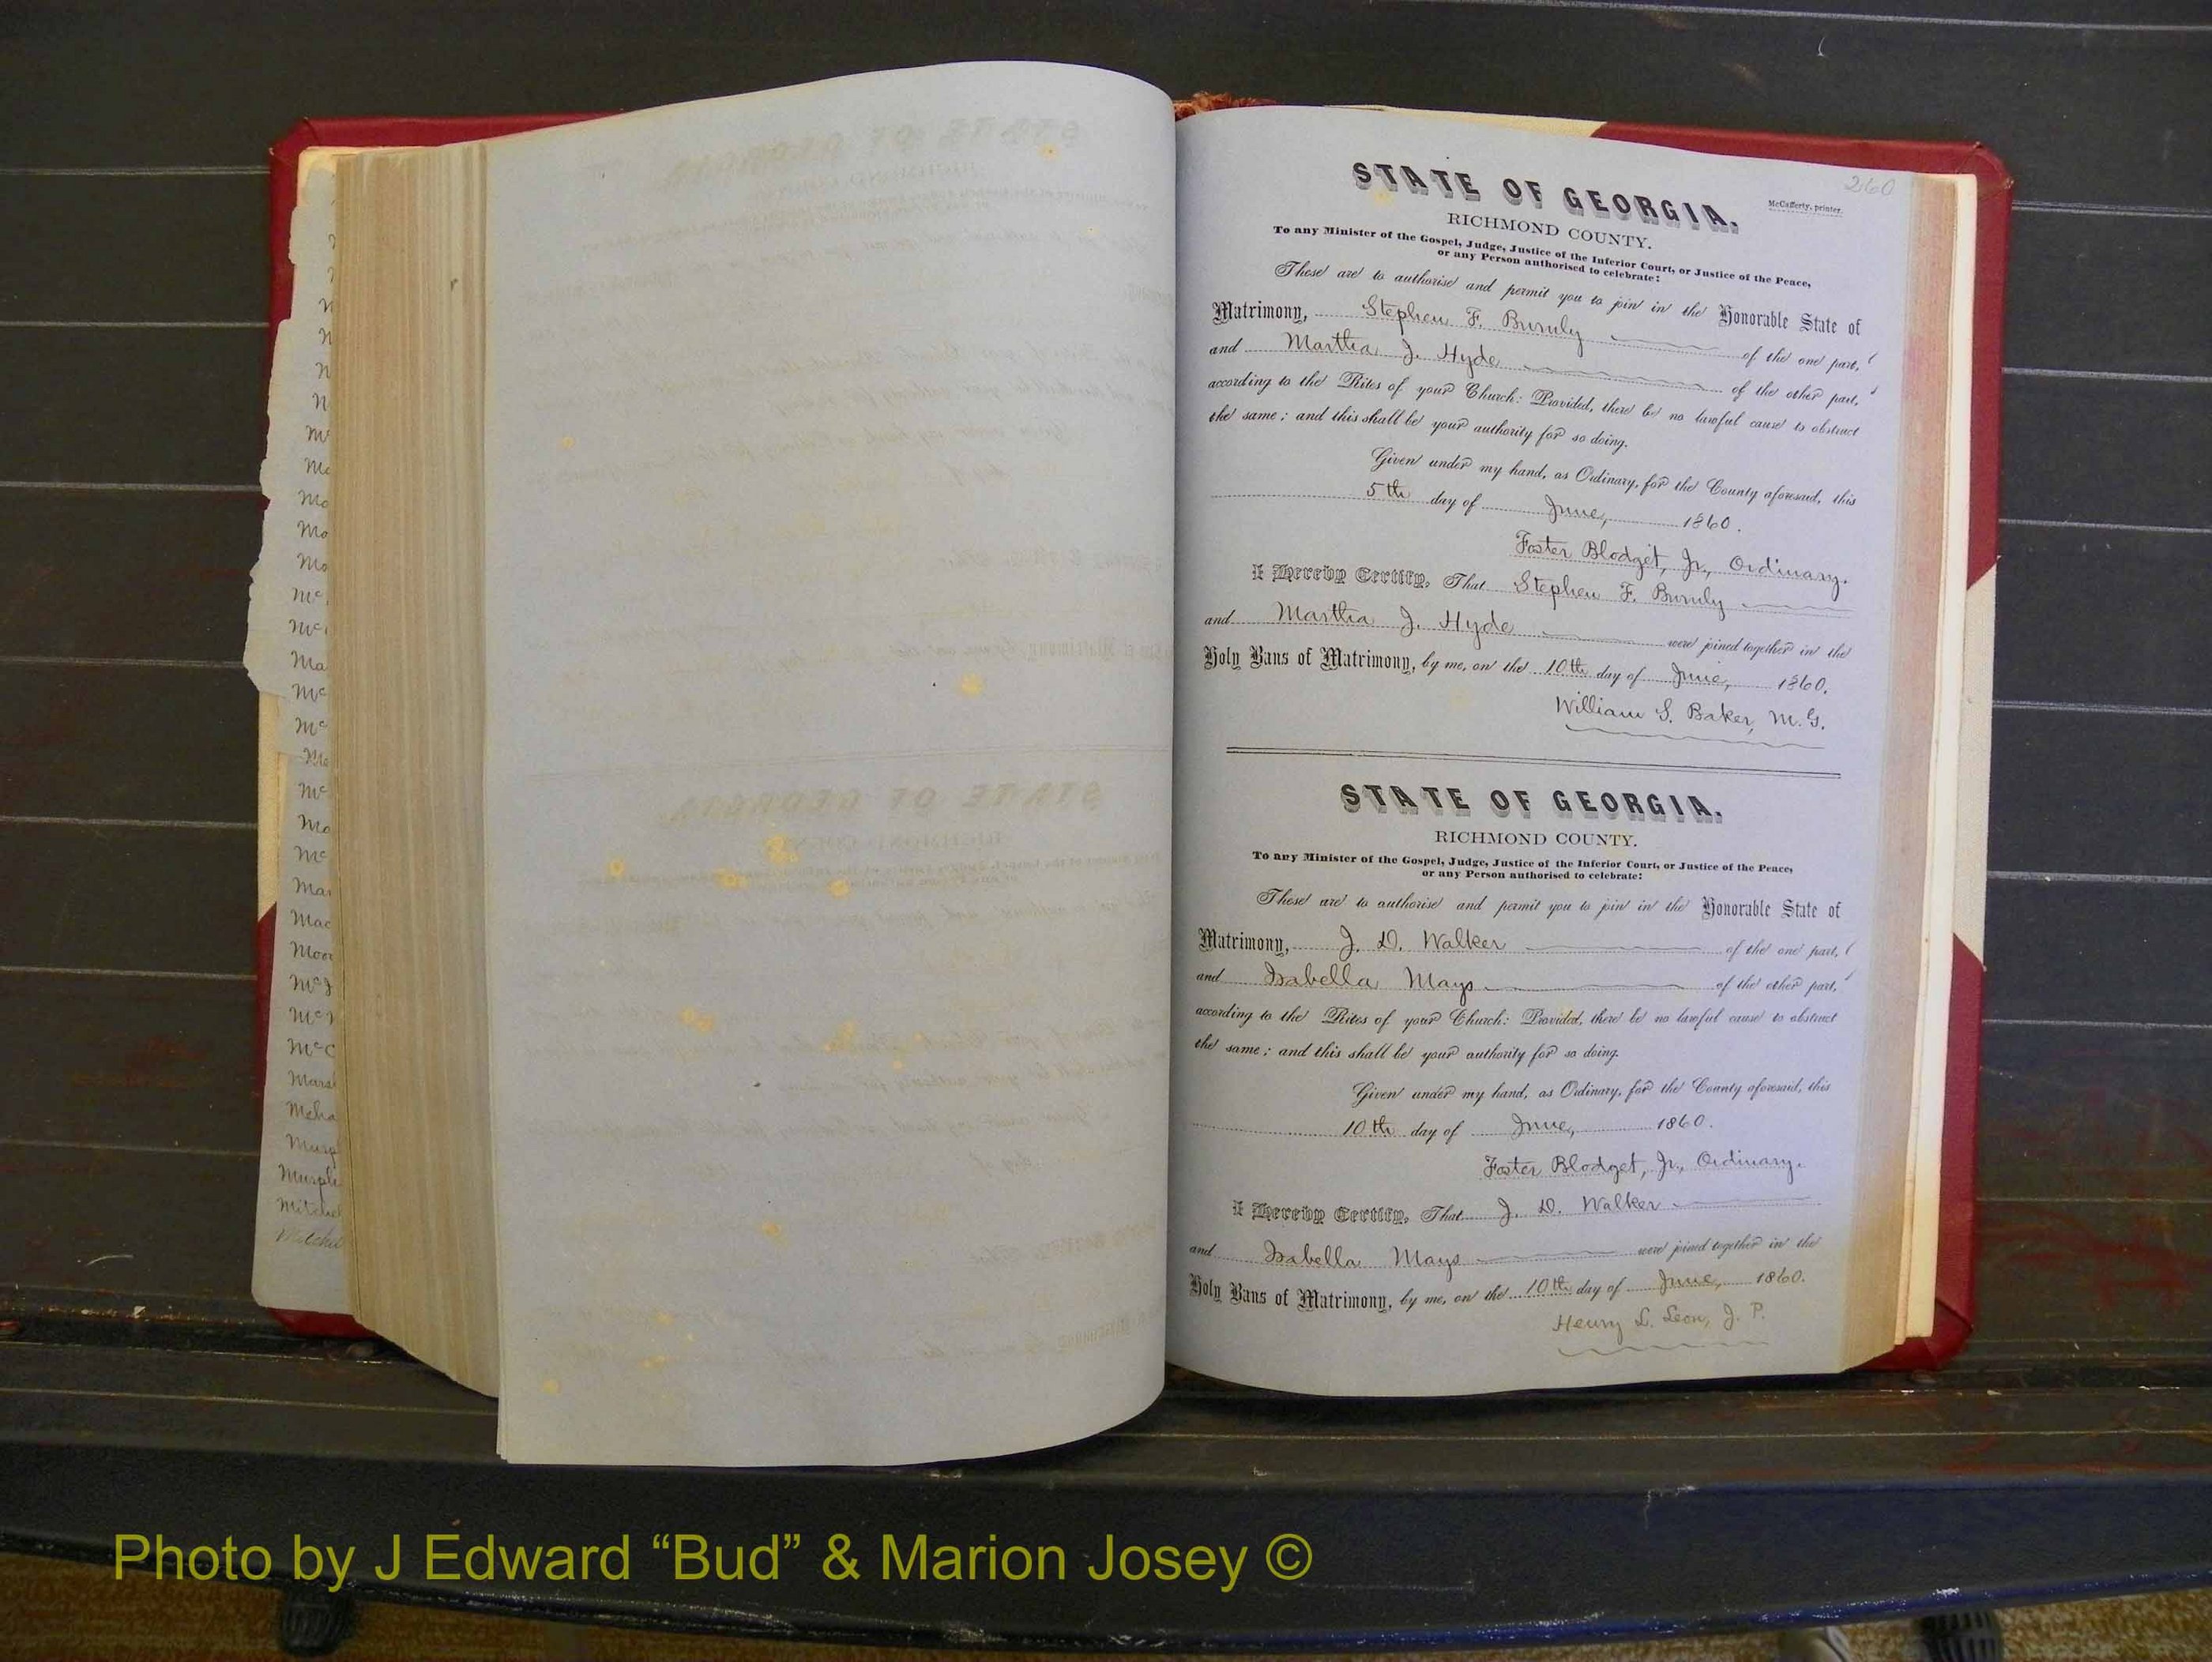 260
STATE OF GEORGIA.
McCafferty, printer.
RICHMOND COUNTY.
To any Minister of the Gospel, Judge, Justice of the Inferior Court, or Justice of the Peace,
or any Person authorised to celebrate:
These are to authorise and permit you to join in the Honorable State of
Matrimony, Stephen F. Burnly of the one part,
and Martha J. Hyde of the other part,
according to the Rites of your Church: Provided, there be no lawful cause to obstruct
the same; and this shall be your authority for so doing.
Given under my hand, as Ordinary, for the County aforesaid, this
5th day of June, 1860.
Foster Blodget, Jr., Ordinary.
I Hereby Certify, That Stephen F. Burnly
and Martha J. Hyde were joined together in the
Holy Bans of Matrimony, by me, on the 10th day of June, 1860.
William S. Baker, M.G.
STATE OF GEORGIA.
RICHMOND COUNTY.
To any Minister of the Gospel, Judge, Justice of the Inferior Court, or Justice of the Peace,
or any Person authorised to celebrate:
These are to authorise and permit you to join in the Honorable State of
Matrimony, J. D. Walker of the one part,
and Isabella Mays of the other part,
according to the Rites of your Church: Provided, there be no lawful cause to obstruct
the same; and this shall be your authority for so doing.
Given under my hand, as Ordinary, for the County aforesaid, this
10th day of June, 1860.
Foster Blodget, Jr., Ordinary.
I Hereby Certify, That J. D. Walker
and Isabella Mays were joined together in the
Holy Bans of Matrimony, by me, on the 10th day of June, 1860.
Henry L. Leon, J. P.
Photo by J Edward “Bud” & Marion Josey ©